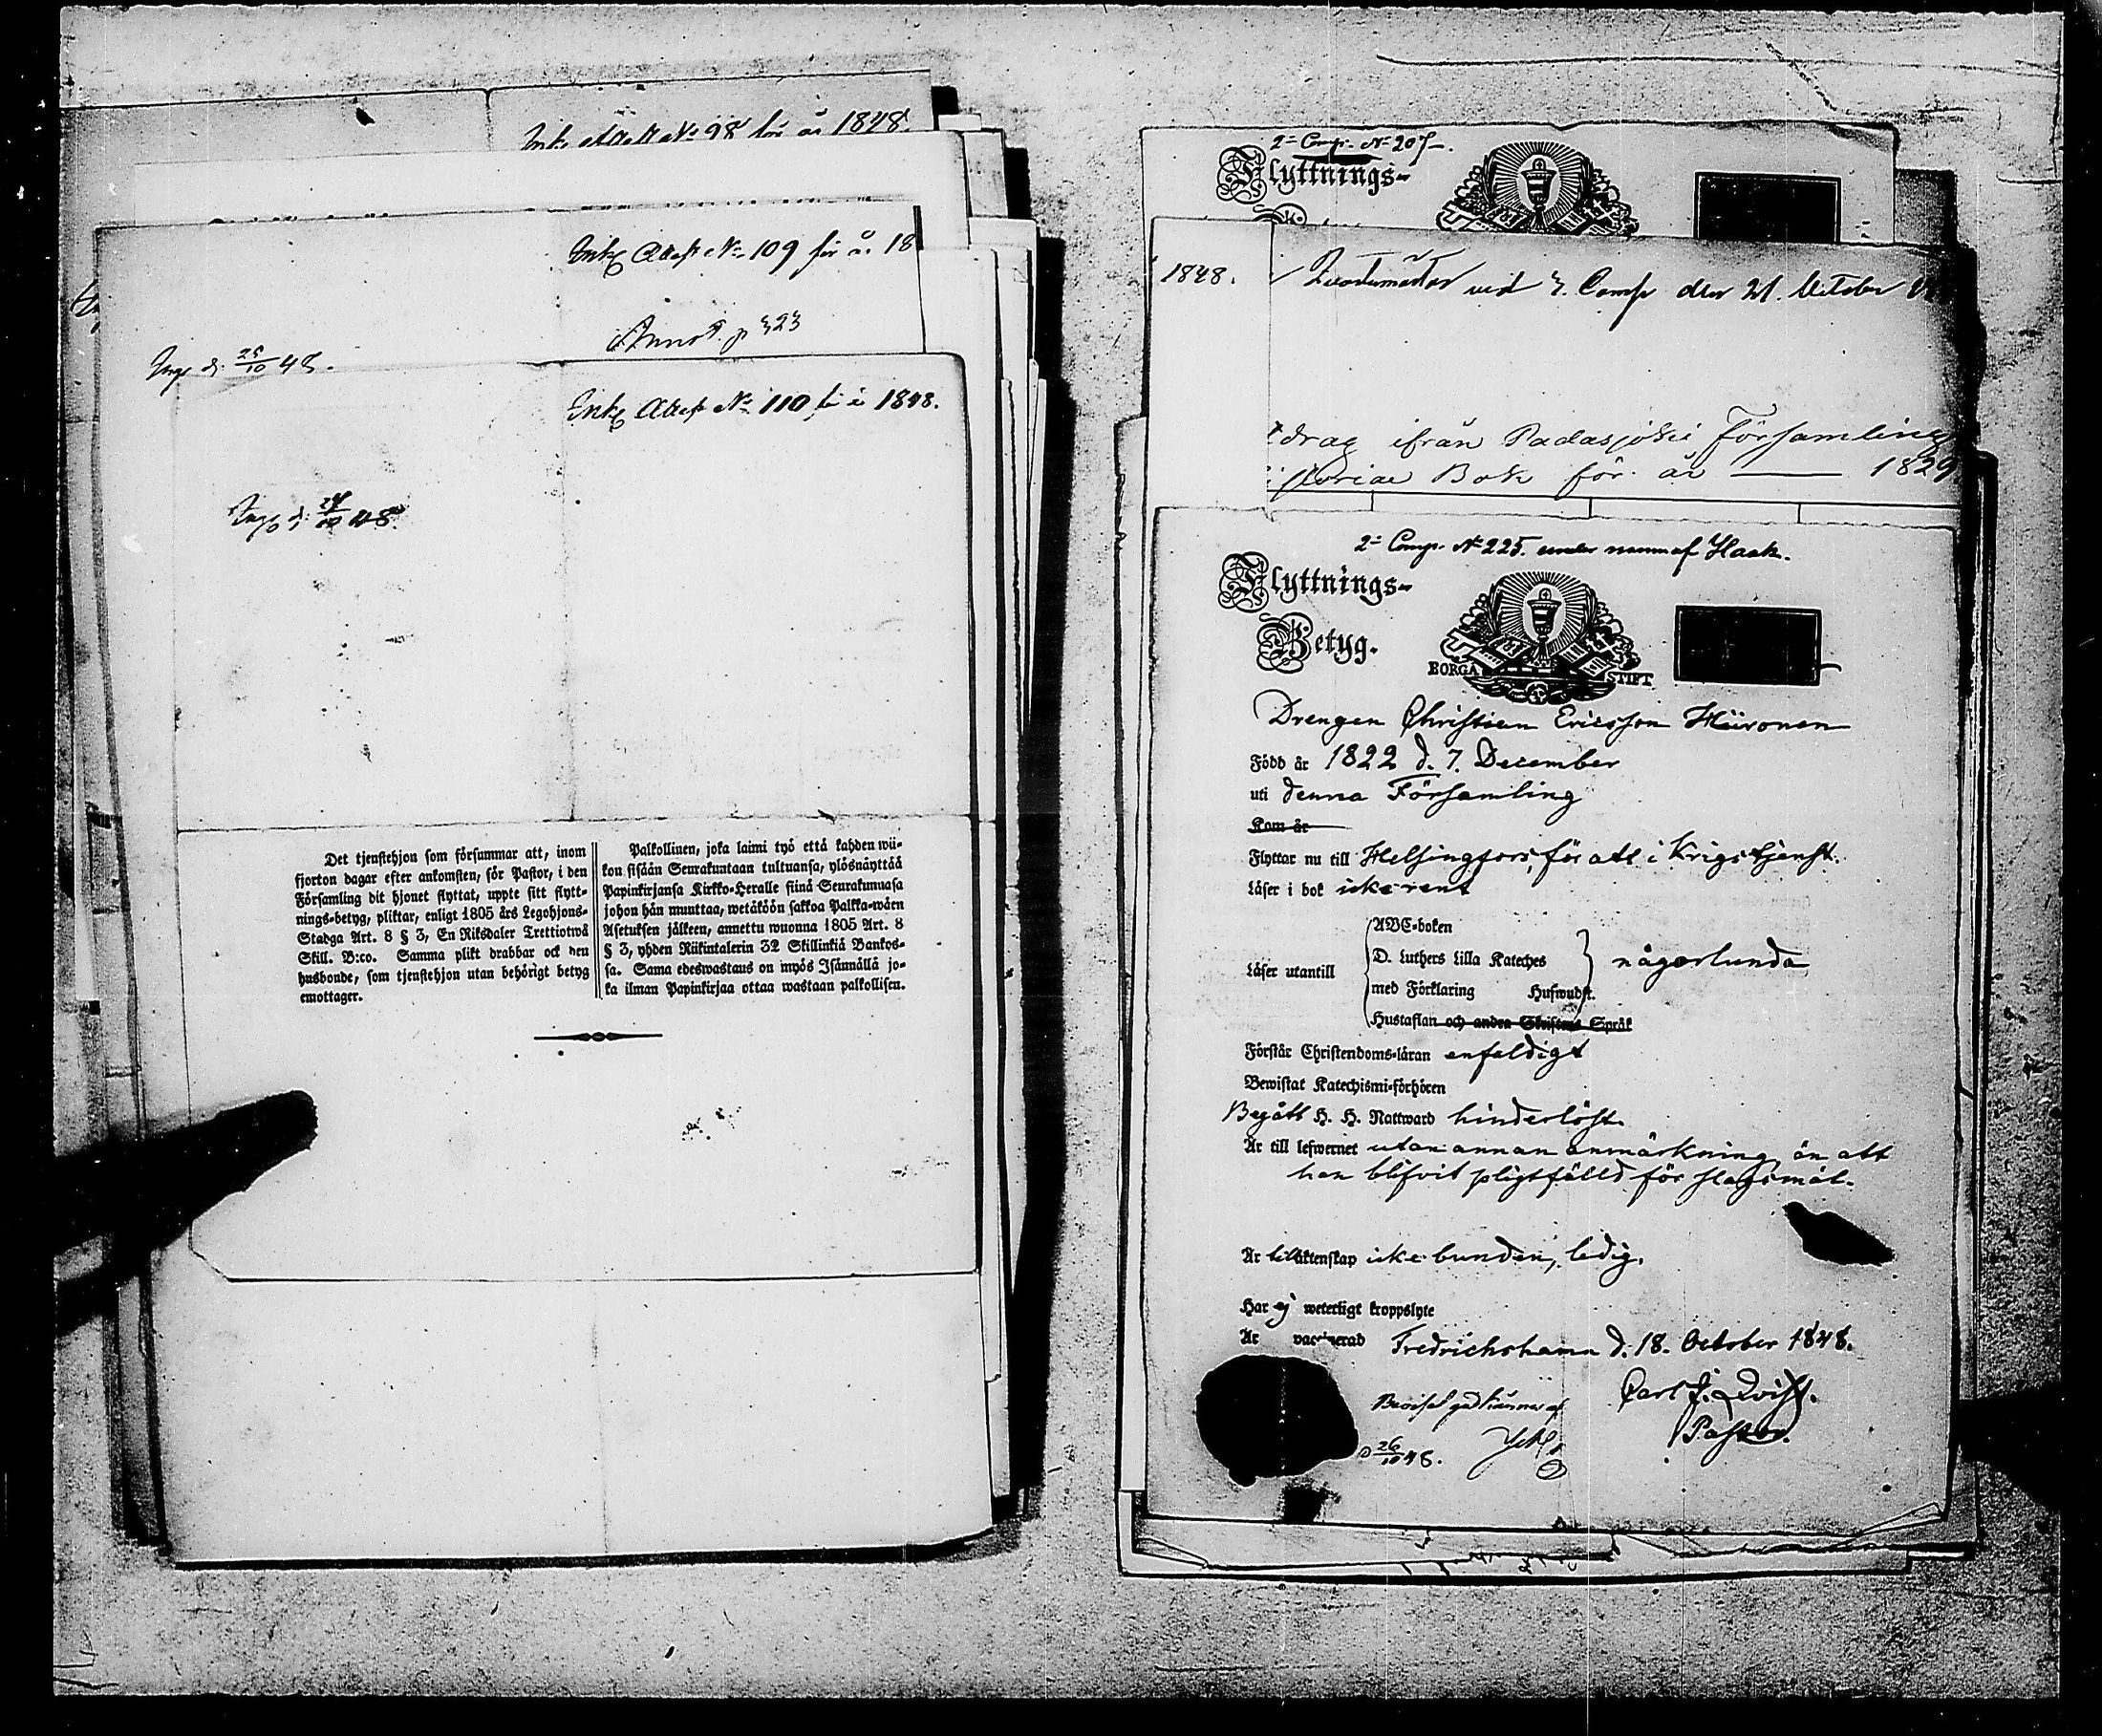 Ink. Attest No 98 för år 1848.
Ink. Attest No 109 för år 18
Annot. p 323
Ing. d. 25/10 48.
Ink. Attest No 110 för år 1848.
Ing. d. 27/10 48.
Det tjenstehjon som försummar att, inom
fjorton dagar efter ankomsten, för Pastor, i den
Församling dit hjonet flyttat, uppte sitt flytt-
nings-betyg, pliktar, enligt 1805 års Legohjons-
Stadga Art. 8 § 3, En Riksdaler Trettiotwå
Skill. B:co. Samma plikt drabbar ock den
husbonde, som tjenstehjon utan behörigt betyg
emottager.
Palkollinen, joka laimi lyö että kahden wii-
kon sisään Seurakuntaan tultuansa, ylösnäyttää
Papinkirjansa Kirkko-Heralle siinä Seurakunnasa
johon hän muuttaa, wetäköön sakkoa Palkka-wäen
Asetuksen jälkeen, annettu wuonna 1805 Art. 8
§ 3, yhden Riikintalerin 32 Skillinkiä Bankos-
sa. Sama edeswastaus on myös Isännällä jo-
ka ilman Papinkirjaa ottaa wastaan palkollisen.
2= Comp. No 207
Flyttnings-
1848.
vid 3. Comp den 21. October
drag ifrån Padasjoki Församling
storiae Bok för år 1829
2= Comp. No 225. under namn af Haak.
Flyttnings-
Betyg.
BORGÅ STIFT
Drengen Christian Ericsson Hiironen
Född år 1822 d. 7. December
uti denna Församling
Kom år
Flyttar nu till Helsingfors, för att i Krigstjenst.
Läser i bok icke rent
Läser utantill
ABC-boken
D. Luthers Lilla Kateches
med Förklaring Hufwudst.
Hustaflan och andra Skriftens Språk
någorlunda
Förstår Christendoms-läran enfaldigt
Bewistat Katechismi-förhören
Begått H. H. Nattward hinderlöst
Är till lefwernet utan annan anmärkning än att
han blifvit pligtfälld för slagsmål.
Är till äktenskap icke bunden, ledig.
Har ej weterligt kroppslyte
Är vaccinerad Fredrichshamn d. 18. October 1848.
Carl J. Qvist.
Pastor.
26/10 48.